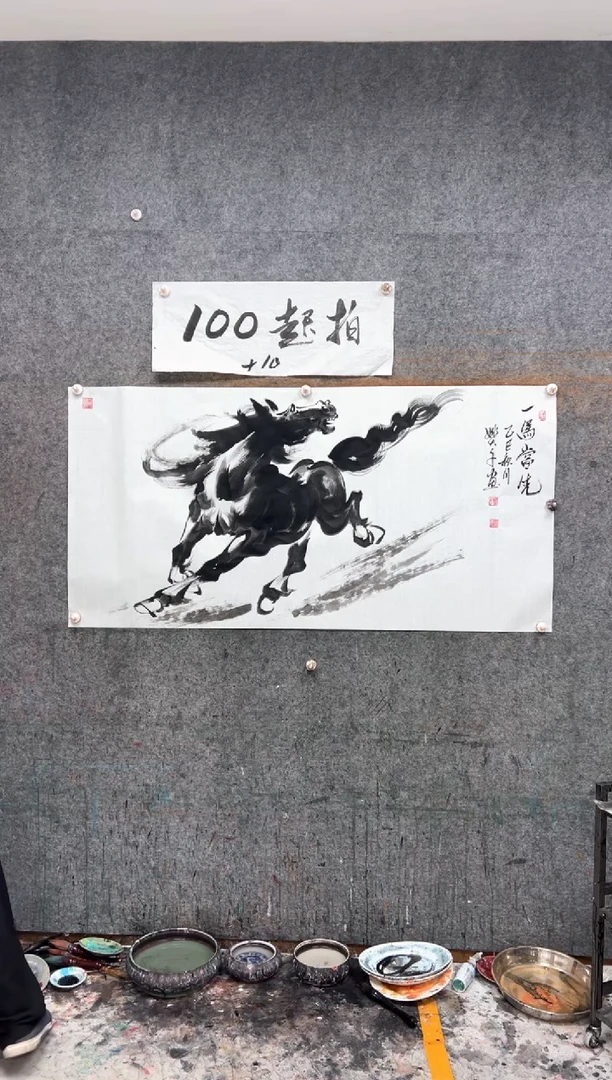 100 起拍
+10
一馬當先
乙巳秋月